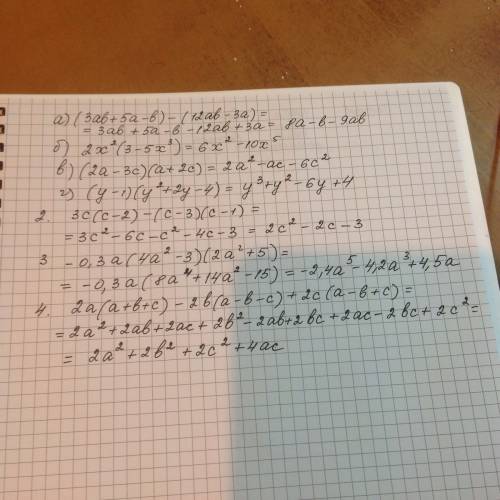 а) (3ab+5a-b)-(12ab-3a)=
= 3ab+5a-b-12ab+3a= 8a-b-9ab
б) 2x²(3-5x³)=6x²-10x⁵
в) (2a-3c)(a+2c)=2a²-ac-6c²
г) (y-1)(y²+2y-4)=y³+y²-6y+4
2. 3c(c-2)-(c-3)(c-1)=
=3c²-6c-c²-4c-3=2c²-2c-3
3 -0,3a(4a²-3)(2a²+5)=
= -0,3a(8a⁴+14a²-15)=-2,4a⁵-4,2a³+4,5a
4. 2a(a+b+c)-2b(a-b-c)+2c(a-b+c)=
=2a²+2ab+2ac+2b²-2ab+2bc+2ac-2bc+2c²=
= 2a²+2b²+2c²+4ac